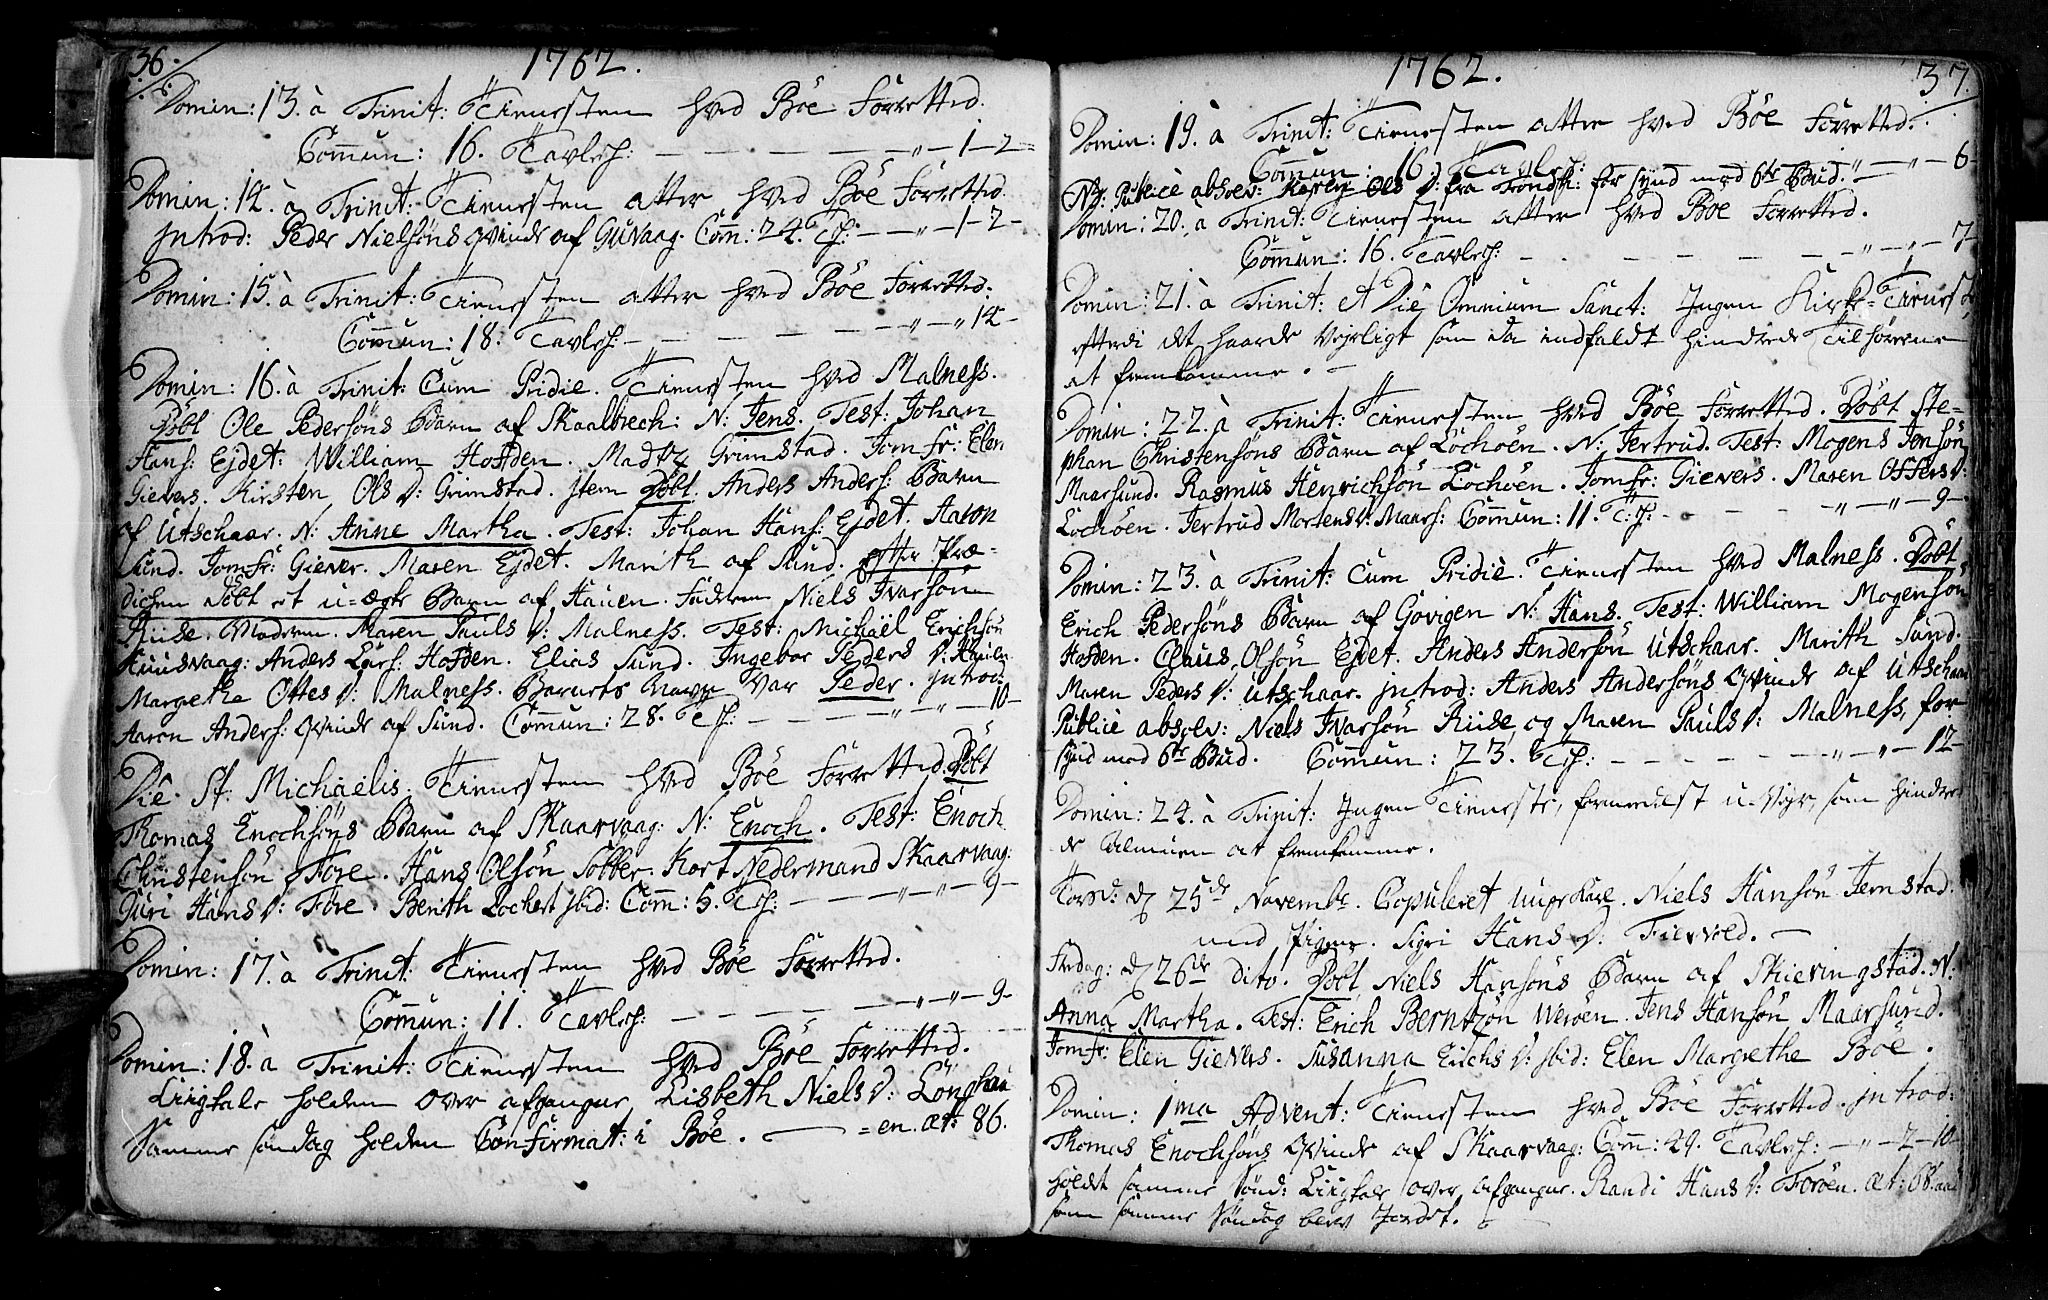 36.
1762.
Domin: 13. à Trinit: Tienesten hved Böe Forretted.
Com̄un: 16. Tavlech: — — — — „—1—2—
Domin: 14. à Trinit: Tienesten atter hved Böe Forretted.
Introd: Peder Nielsöns Qvinde af Guvaag. Com̄: 24. Tch: — — „—1—2—
Domin: 15. à Trinit: Tienesten atter hved Böe Forretted.
Com̄un: 18. Tavlech: — — — — „—„—14—
Domin: 16. à Trinit: Cum Pridie. Tienesten hved Malness.
Döbt Ole Pedersöns Barn af Skaalbrech: N: Jens. Test: Johan
Hans: Ejdet: William Hofden. Grimstad. Jomfr: Elen
Gievers. Kirsten Ols D: Grimstad. Item Döbt Anders Anders: Barn
af Utschaar. N: Anne Martha. Test: Johan Hans: Ejdet. Aaron
Sund. Jomfr: Giever. Maren Ejdet. Marith af Sund. Efter Præ-
dichen Döbt et u-ægte Barn af Hauen. Faderen Niels Ivarsön
Riise. Moderen. Maren Pauls D: Malness. Test: Michaël Erichsön
Kuinsvaag: Anders Lars: Hofden. Elias Sund. Ingebor Peders D: Hauen.
Margrethe Ottes D: Malness. Barnets Navn var Peder. Introd:
Aaron Anders: Qvinde af Sund. Com̄un: 28. Tch: — — — „—„—10—
Die. St. Michaëlis. Tienesten hved Böe Forretted. Döbt
Thomas Enochsöns Barn af Skaarvaag: N: Enoch. Test: Enoch
Christensön Före. Hans Olsön Sobber. Kort Nedermand Skaarvaag:
Guri Hans D: Före. Berith Lochert ibid: Com̄: 5. Tch: — — „—„—9—
Domin: 17. à Trinit: Tienesten hved Böe Forretted.
Com̄un: 11. Tavlech: — — — — „—„—9—
Domin: 18. à Trinit: Tienesten hved Böe Forretted.
Liigtale holden over afgangne Lisbeth Niels D: Longhau
=en. æt: 86.
Samme söndag holden Confirmat: i Böe. —
1762.
37.
Domin: 19. à Trinit: Tienesten atter hved Böe Forretted.
Com̄un: 16. Tavlech: „—„—6—
Publicè absolv: Karen Ols D: fra Trondh: for synd mod 6te Bud.
Domin: 20. à Trinit: Tienesten atter hved Böe Forretted.
Com̄un: 16. Tavlech: — — — — — „—„—7—
Domin: 21. à Trinit: et Die Omnium Sanct: Ingen Kirke-Tieneste
efterdi det haarde Vejrligt som da indfaldt hindrede Tilhörerne
at fremkomme. —
Domin: 22. à Trinit: Tienesten hved Böe Forretted. Döbt Ste-
phan Christensöns Barn af Lochöen. N: Jertrud. Test: Mogens Jensön
Maarsund. Rasmus Henrichsön Lochöen. Jomfr: Gievers. Maren Offers D:
Lochöen. Jertrud Mortens D: Maars: Com̄un: 11. Tch: — — — „—„—9—
Domin: 23. à Trinit: Cum Pridiè. Tienesten hved Malness. Döbt
Erich Pedersöns Barn af Govigen N: Hans. Test: William Mogensön
Hofden. Claus Olsön Ejdet. Anders Andersön Utschaar. Marith Sund.
Maren Peders D: Utschaar. Introd: Anders Andersöns Qvinde af Utschaar
Publicè absolv: Niels Ivarsön Riise og Maren Pauls D: Malness, for
synd mod 6te Bud. Com̄un: 23. Tch: — — — — „—„—12—
Domin: 24. à Trinit: Ingen Tieneste, formedelst u-Vejr, som hindred
de Almuen at fremkomme.
Torsd: d 25de Novembr. Copuleret ungekarl. Niels Hansön Jernstad.
med Pigen. Sigri Hans D: Fiervold. —
Fredag: d 26de dito. Döbt Niels Hansöns Barn af Skieringstad. N:
Anna Martha. Test: Erich Berntzön Weröen. Jens Hansön Maarsund.
Jomfr: Elen Gievers. Susanna Erichs D: ibid: Elen Margrethe Böe.
Domin: 1ma Advent: Tienesten hved Böe Forretted. Introd:
Thomas Enochsöns Qvinde af Skaarvaag: Com̄: 49. Tavlech: — „—2—10—
holdt samme Sönd: Liigtale over afgangne. Randi Hans D: Foröen. æt: 68 aar
som samme Söndag blev Jordet.